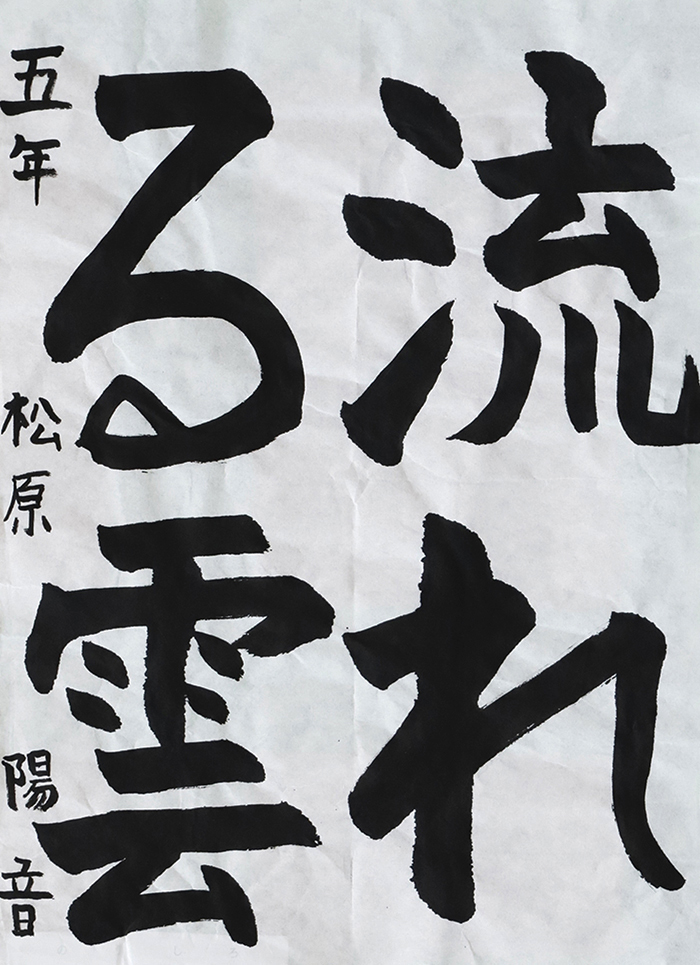 流れ
る雲
五年 松原 陽音